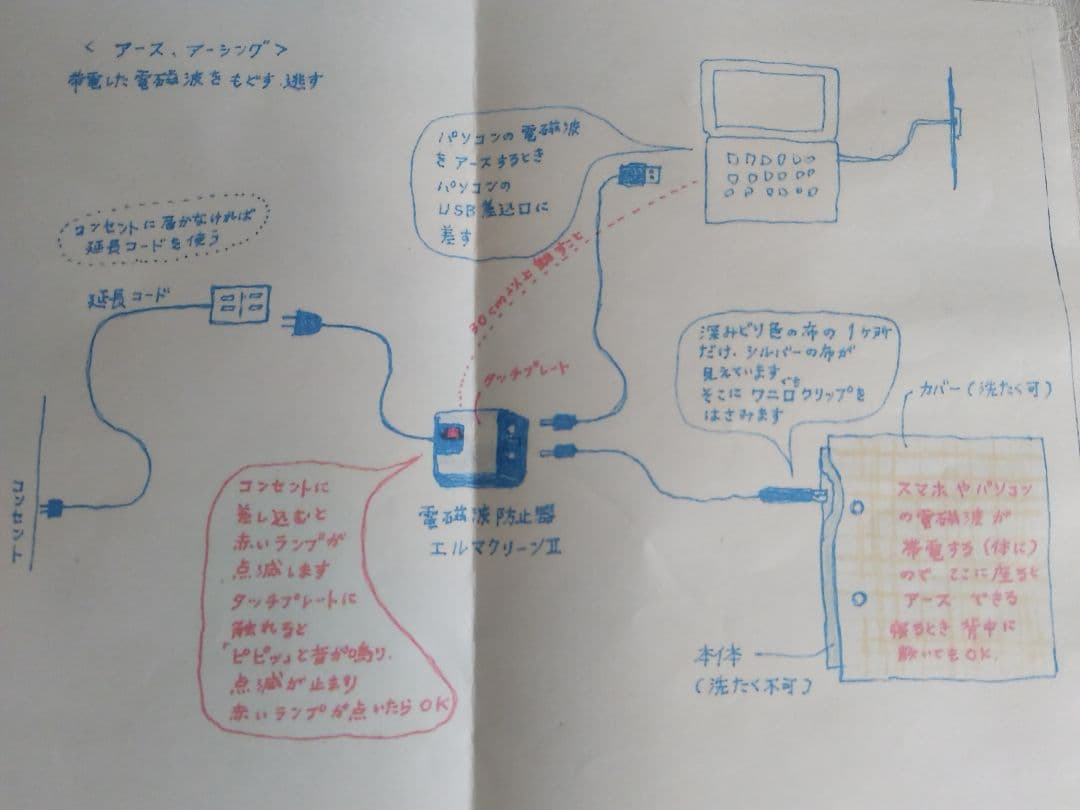 < アース、アーシング>
帯電した電磁波をもどす、逃す
パソコンの電磁波
をアースするとき
パソコンの
USB差込口に
差す
コンセントに届かなければ
延長コードを使う
延長コード
コンセント
タッチプレート
電磁波防止器
エルマクリーンⅡ
コンセントに
差し込むと
赤いランプが
点滅します
タッチプレートに
触れると
「ピピッ」と音が鳴り、
点滅が止まり
赤いランプが点いたらOK
深みどり色の布の1ヶ所
だけ、シルバーの布が
見えています
そこにワニ口クリップを
ぐち
はさみます
カバー(洗たく可)
スマホやパソコン
の電磁波が
帯電する(体に)
ので、ここに座ると
アースできる
寝るとき背中に
敷いてもOK.
本体
(洗たく不可)